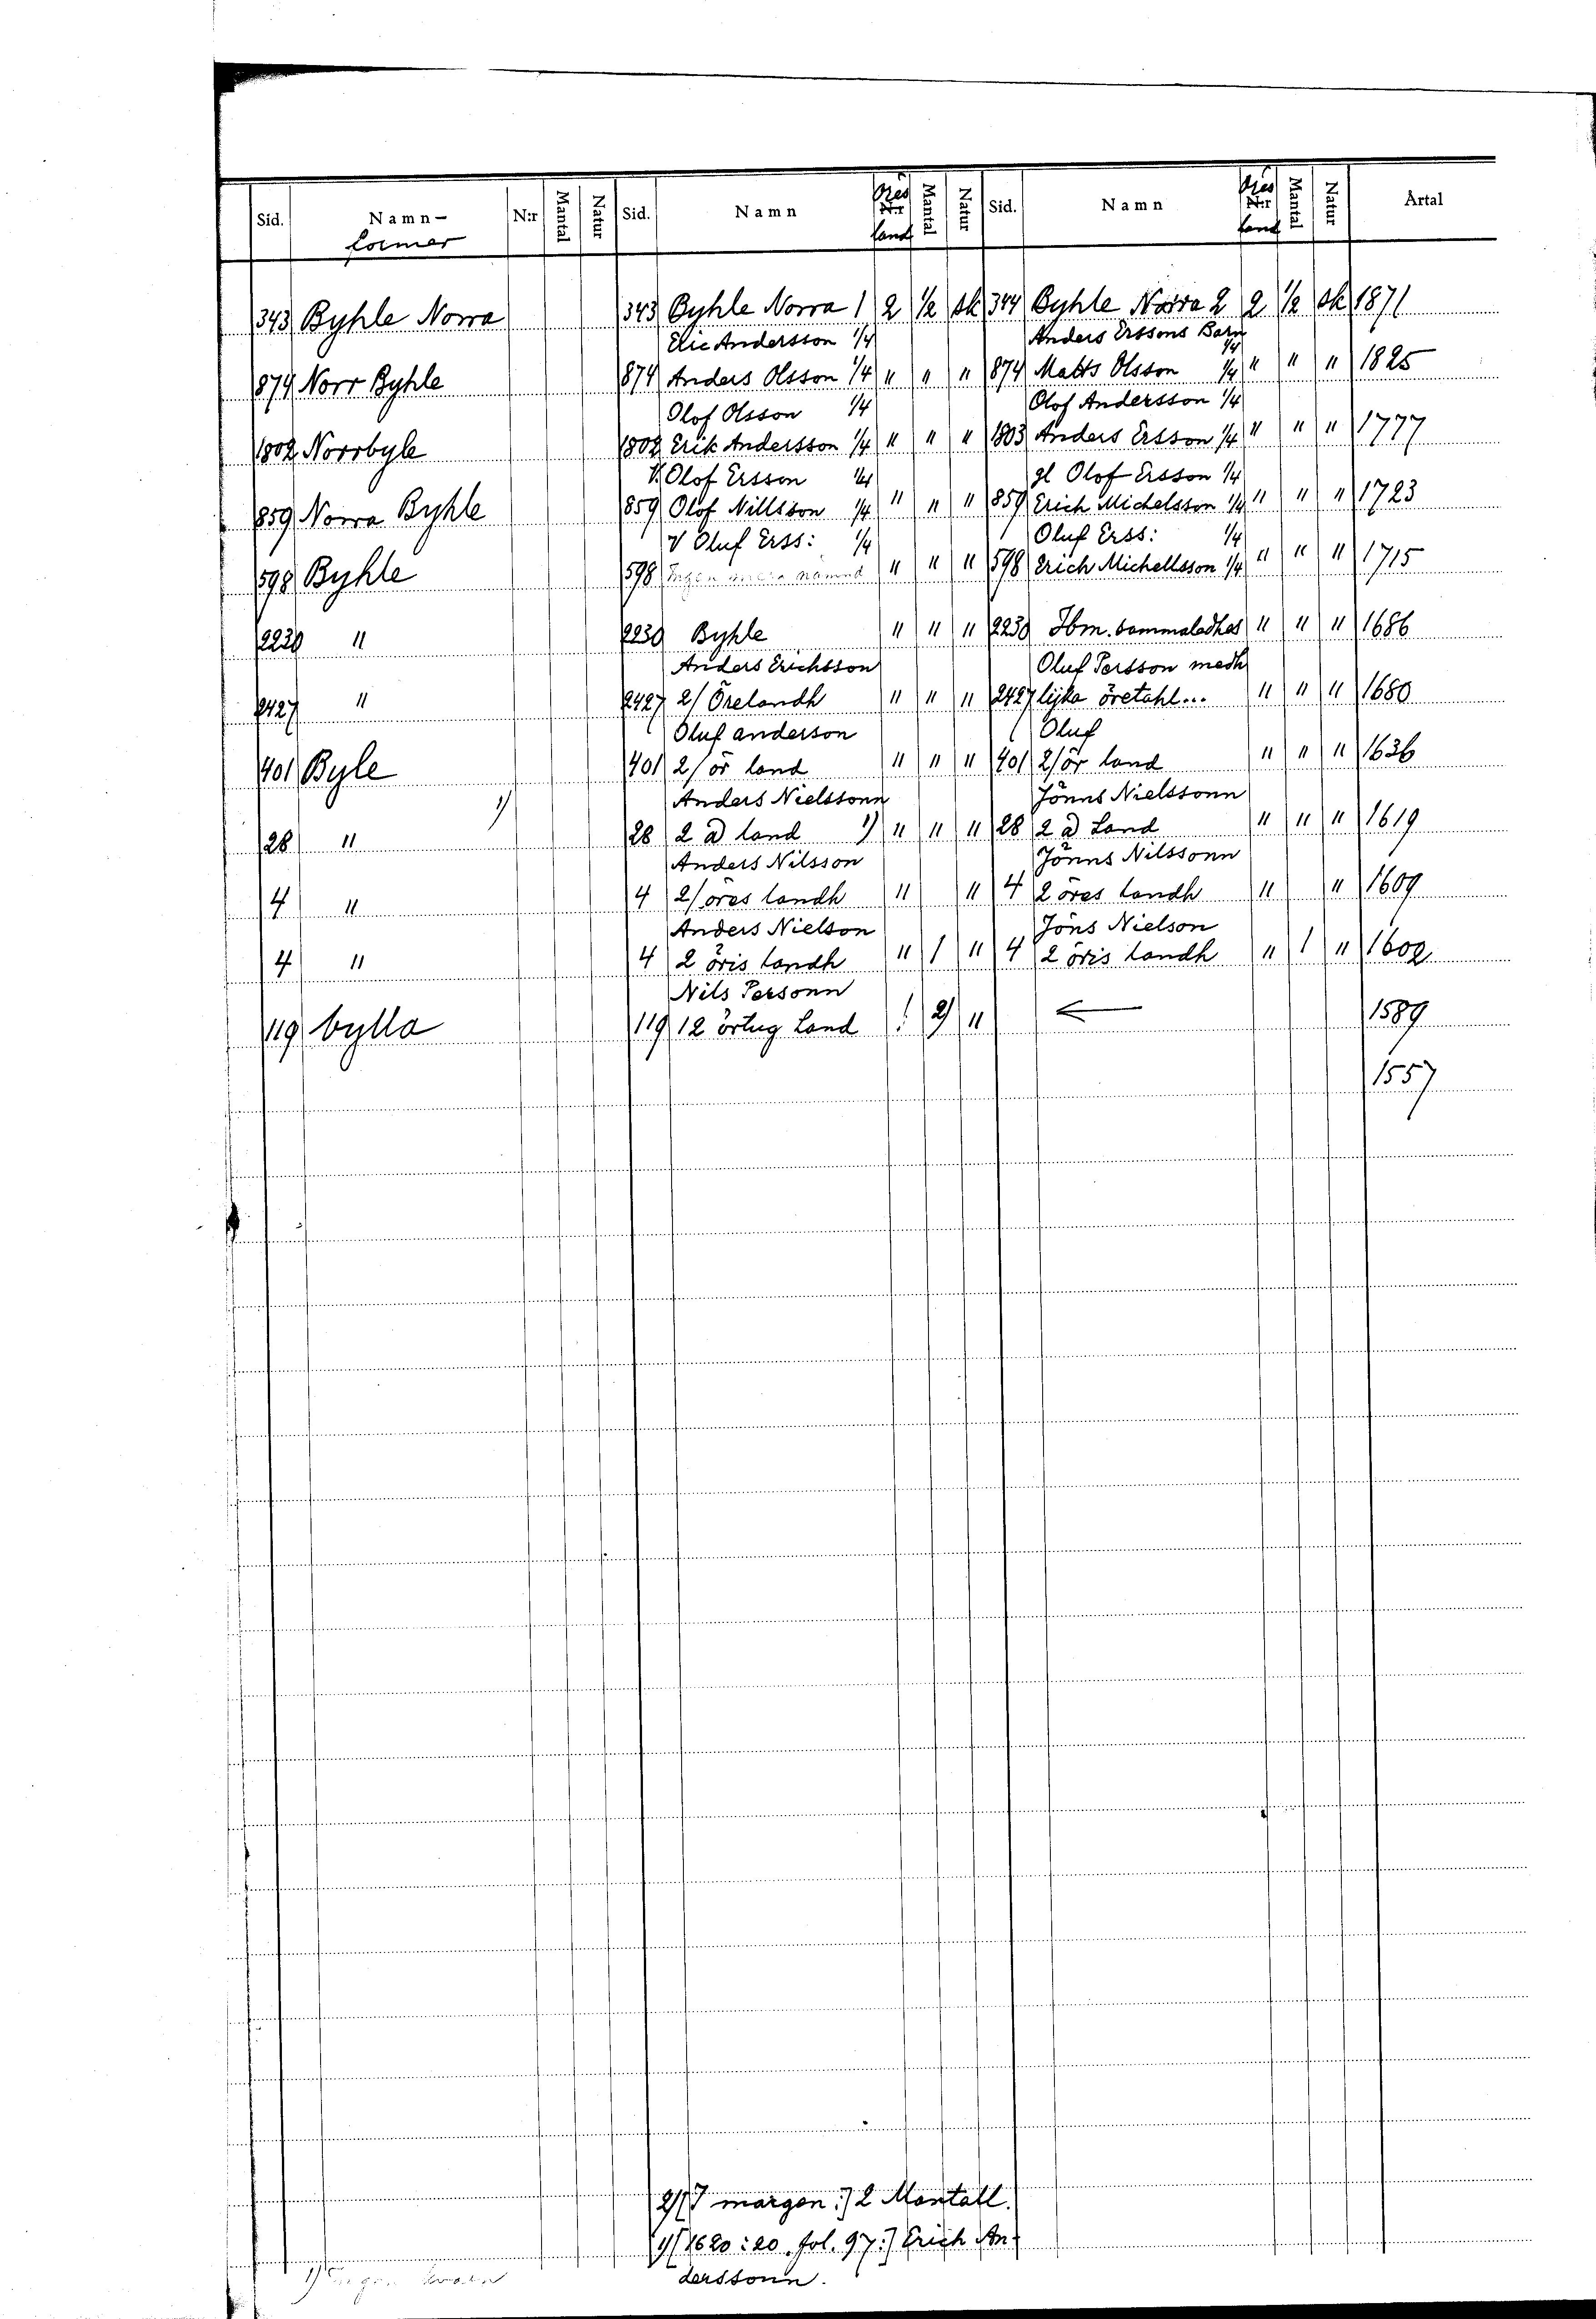 Sid. Namn- N:r Mantal Natur Sid. Namn Öres N:r land Mantal Natur Sid. Namn Öres N:r land Mantal Natur Årtal
former
343 Byhle Norra 343 Byhle Norra 1 2 1/2 sk 344 Byhle Norra 2 2 1/2 sk 1871
Eric Andersson 1/4 Anders Erssons Barn 1/4
874 Norr Byhle 874 Anders Olsson 1/4 " " " 874 Matts Olsson 1/4 " " " 1825
Olof Olsson 1/4 Olof Andersson 1/4
1802 Norrbyle 1802 Erik Andersson 1/4 " " " 1803 Anders Ersson 1/4 " " " 1777
V. Olof Ersson 1/4 gl Olof Ersson 1/4
859 Norra Byhle 859 Olof Nillsson 1/4 " " " 859 Erich Michelsson 1/4 " " " 1723
V Oluf Erss: 1/4 Oluf Erss: 1/4
598 Byhle 598 Ingen mera nämnd " " " 598 Erich Michellsson 1/4 " " " 1715
2230 " 2230 Byhle " " " 2230 Ibm. sammaledhes " " " 1686
Anders Erichsson Oluf Persson medh
2427 " 2427 2/ Örelandh " " " 2427 lijka öretahl... " " " 1680
Oluf anderson Oluf
401 Byle 401 2/ör land " " " 401 2/ör land " " " 1636
1) Anders Nielssonn Jönns Nielssonn
28 " 28 2 a) land 1) " " " 28 2 a) Land " " " 1619
Anders Nilsson Jönns Nilssonn
4 " 4 2/öres landh " " 4 2 öres landh " " 1609
Anders Nielson Jöns Nielson
4 " 4 2 öris landh " 1 " 4 2 öris landh " 1 " 1602
Nils Personn
119 bylla 119 12 örtug Land ! 2) " ← 1589
1557
2) [I margen:] 2 Mantall.
1) [1620:20. fol. 97:] Erich An-
derssonn.
1) Ingen